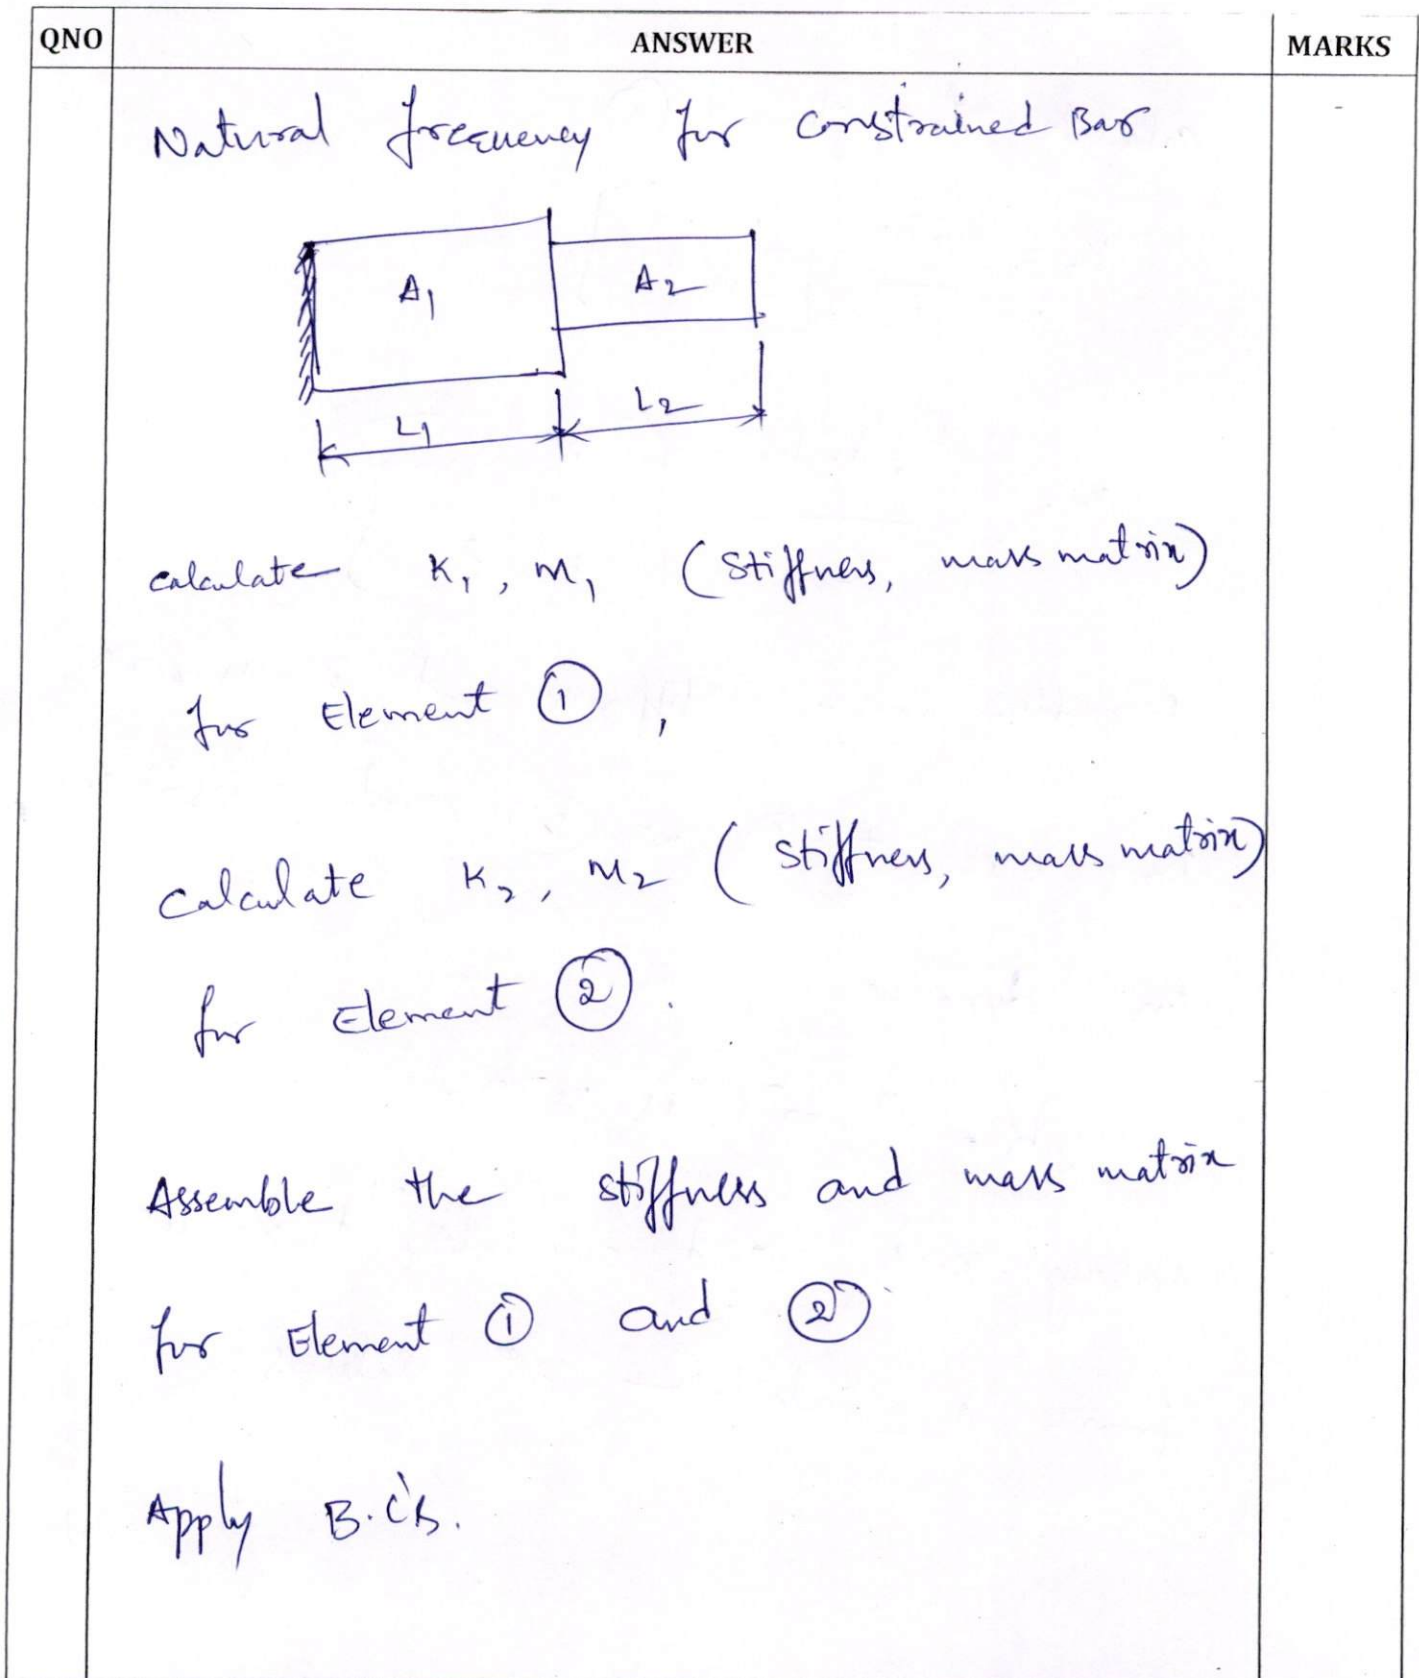 QNO ANSWER MARKS
Natural frequency for constrained Bar.
A1 A2
L1 L2
calculate K1, M1 (Stiffness, mass matrix)
for Element ①,
Calculate K2, M2 (stiffness, mass matrix)
for Element ②.
Assemble the stiffness and mass matrix
for Element ① and ②
Apply B.C's.